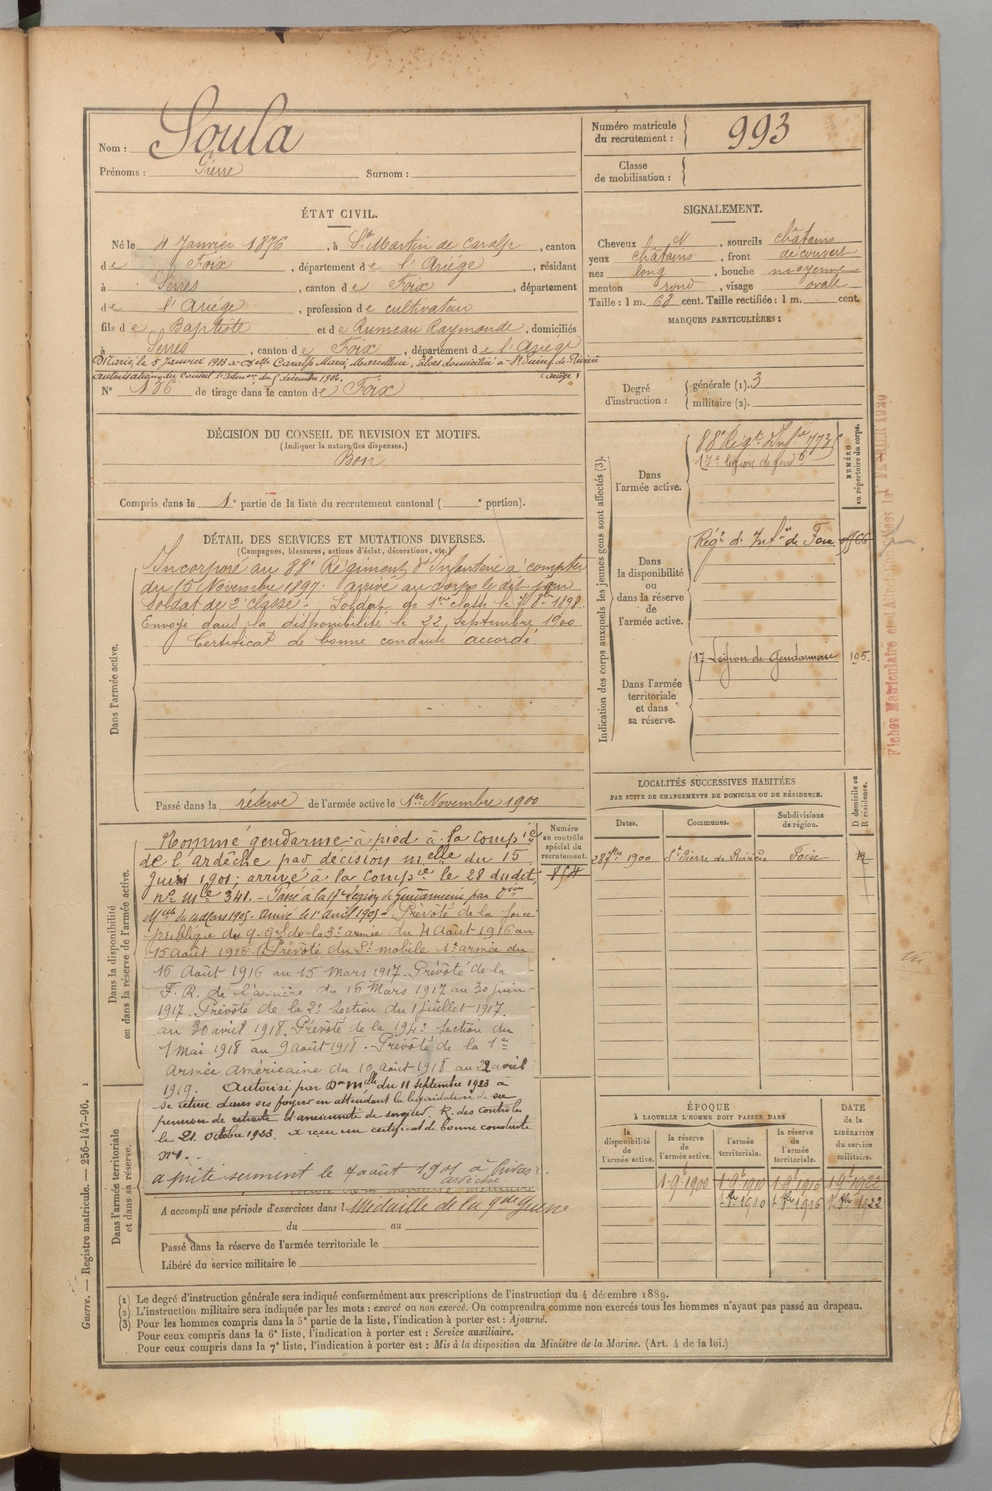 Nom : Soula
Prénoms : Pierre Surnom :
Numéro matricule du recrutement : 993
Classe de mobilisation :
ÉTAT CIVIL.
Né le 4 Janvier 1876, à St Martin de Caralp, canton
de Foix, département de l'Ariége, résidant
à Serres, canton de Foix, département
de l'Ariége, profession de cultivateur
fils de Baptiste et de Rumeau Raymonde, domiciliés
à Serres, canton de Foix, département de l'Ariége
Marié le 5 Janvier 1903 à Delle Caralp Marie Marcelline, domiciliée à St Pierre de Rivière
Autorisation du Conseil d'admon du 5 décembre 1902. (Ariège)
N° 136 de tirage dans le canton de Foix
SIGNALEMENT.
Cheveux N, sourcils châtains
yeux châtains, front découvert
nez long, bouche moyenne
menton rond, visage ovale
Taille : 1 m. 68 cent. Taille rectifiée : 1 m. cent.
MARQUES PARTICULIÈRES :
Degré d'instruction : générale (1). 3
militaire (2).
DÉCISION DU CONSEIL DE REVISION ET MOTIFS.
(Indiquer la nature des dispenses.)
Bon
Compris dans la 1e partie de la liste du recrutement cantonal ( e portion).
DÉTAIL DES SERVICES ET MUTATIONS DIVERSES.
(Campagnes, blessures, actions d'éclat, décorations, etc.)
Dans l'armée active.
Incorporé au 88e Régiment d'Infanterie à compter
du 15 Novembre 1897. arrivé au corps le dit jour
Soldat de 2e classe. Soldat de 1ère classe le 1898.
Envoyé dans la disponibilité le 22 Septembre 1900
Certificat de bonne conduite accordé
Passé dans la réserve de l'armée active le 1er Novembre 1900
Indication des corps auxquels les jeunes gens sont affectés (3).
NUMÉRO au répertoire du corps.
Dans l'armée active.
88e Régt Infie 773
17e légion de gendie
Dans la disponibilité ou dans la réserve de l'armée active.
Régt d'Infie de Foix
Dans l'armée territoriale et dans sa réserve.
17 Légion de Gendarmerie 195.
Fiches Matriculaire et d'Affectation
LOCALITÉS SUCCESSIVES HABITÉES
PAR SUITE DE CHANGEMENTS DE DOMICILE OU DE RÉSIDENCE.
Dates. Communes. Subdivisions de région. D domicile ou R résidence.
28 1900 St Pierre de Rivière Foix R
Dans la disponibilité ou dans la réserve de l'armée active.
Numéro au contrôle spécial du recrutement.
Nommé gendarme à pied à la Compie
de l'ardêche par décision melle du 15
Juin 1901; arrivé à la Compie le 28 dudit,
no mle 341. - Passé à la 17e légion de Gendarmerie par Don
Melle du 14 Mars 1905. arrivé le 1er avril 1905 - Prévôté de la force
publique du q. gal de la 3e armée du 4 Août 1916 au
15 août 1916. Prévôté du mobile 1e armée du
16 Août 1916 au 15 Mars 1917. Prévôté de la
F. R. de l'arrière du 16 Mars 1917 au 30 juin
1917. Prévôté de la 2e section du 1 juillet 1917
au 30 avril 1918. Prévôté de la 194e section du
1 Mai 1918 au 9 août 1918. Prévôté de la 1re
Armée américaine du 10 août 1918 au 2 avril
1919. Autorisé par Don Melle du 11 septembre 1923 à
se retirer dans ses foyers en attendant la liquidation de sa
pension de retraite d'ancienneté de services. R. des contrôles
le 21 octobre 1923. a reçu un certificat de bonne conduite
no 1.
a prêté serment le 7 août 1901 à Privas
ardèche
Dans l'armée territoriale et dans sa réserve.
A accompli une période d'exercices dans l Médaille de la gde guerre
du au
Passé dans la réserve de l'armée territoriale le
Libéré du service militaire le
ÉPOQUE
À LAQUELLE L'HOMME DOIT PASSER DANS
la disponibilité de l'armée active. la réserve de l'armée active. l'armée territoriale. la réserve de l'armée territoriale.
DATE DE LA LIBÉRATION du service militaire.
1 9e 1900 1 9e 1910 1 9e 1916 1 9e 1922
1 1910 1 1916 1 1922
(1) Le degré d'instruction générale sera indiqué conformément aux prescriptions de l'instruction du 4 décembre 1889.
(2) L'instruction militaire sera indiquée par les mots : exercé ou non exercé. On comprendra comme non exercés tous les hommes n'ayant pas passé au drapeau.
(3) Pour les hommes compris dans la 5e partie de la liste, l'indication à porter est : Ajourné.
Pour ceux compris dans la 6e liste, l'indication à porter est : Service auxiliaire.
Pour ceux compris dans la 7e liste, l'indication à porter est : Mis à la disposition du Ministre de la Marine. (Art. 4 de la loi.)
Guerre. — Registre matricule. — 256-147-96. 1